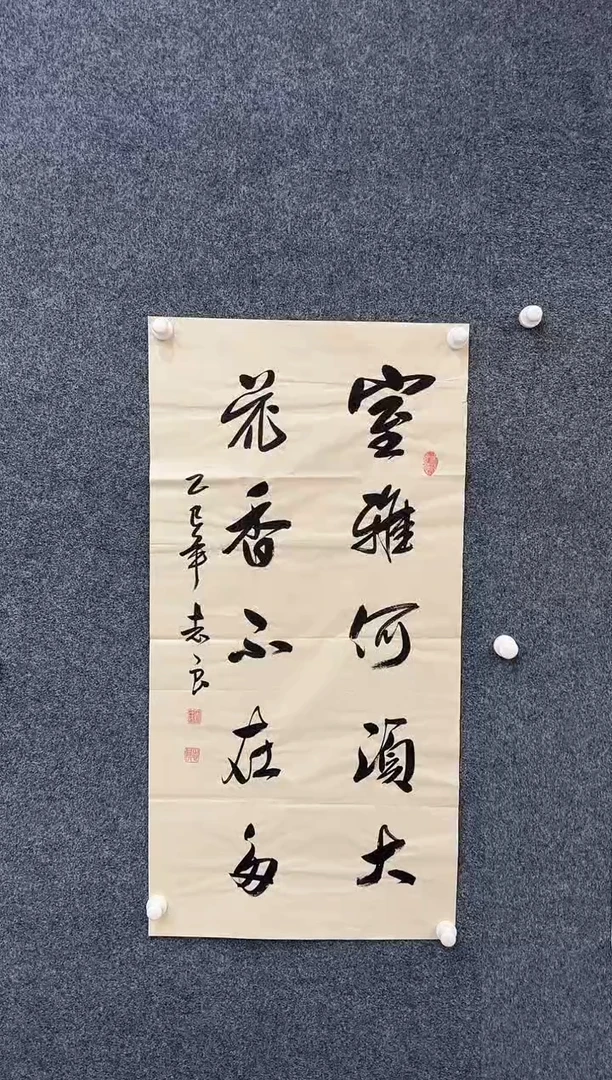 室雅何須大
花香不在多
乙巳年 志良